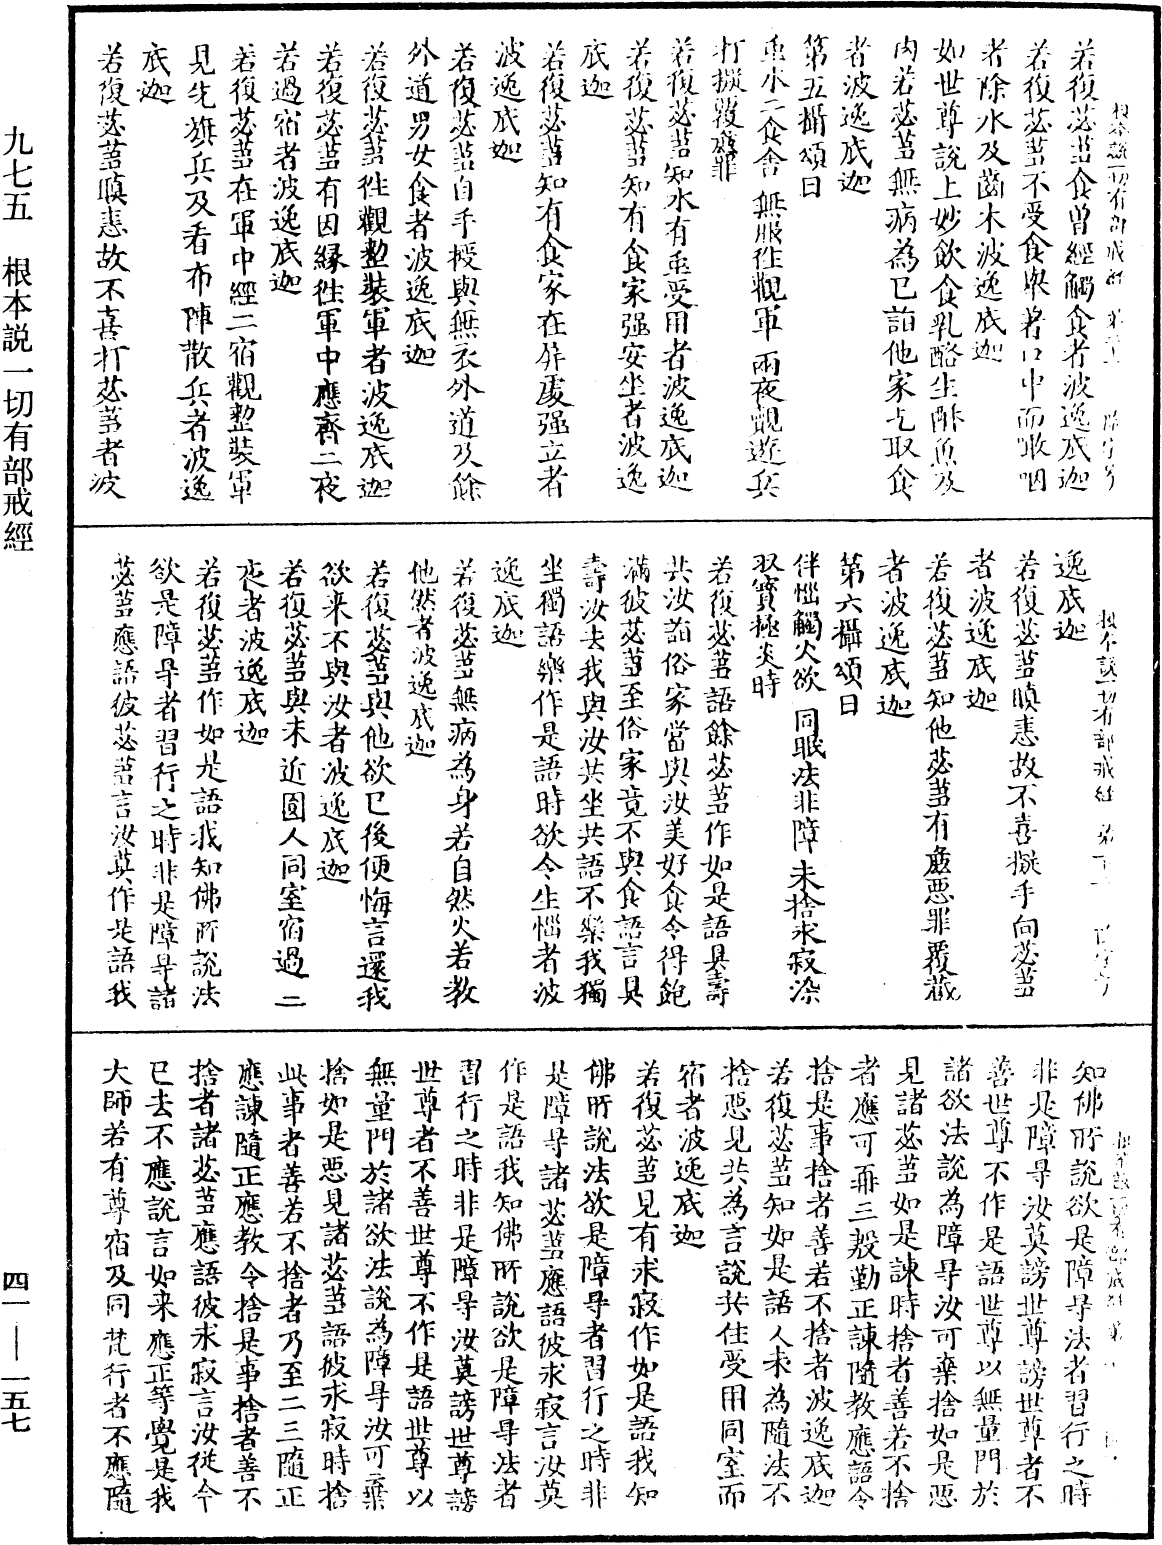 若復苾芻食曾經觸食者波逸底迦
若復苾芻不受食舉著口中而噉咽
者除水及齒木波逸底迦
如世尊說上妙飲食乳酪生酥魚及
肉若苾芻無病為己詣他家乞取食
者波逸底迦
第五攝頌曰
虫水二食舍 無服往觀軍 兩夜覩遊兵
打擬覆麁罪
若復苾芻知水有虫受用者波逸底迦
若復苾芻知有食家强安坐者波逸
底迦
若復苾芻知有食家在屏處强立者
波逸底迦
若復苾芻自手授與無衣外道及餘
外道男女食者波逸底迦
若復苾芻往觀整裝軍者波逸底迦
若復苾芻有因緣往軍中應齊二夜
若過宿者波逸底迦
若復苾芻在軍中經二宿觀整裝軍
見先旗兵及看布陣散兵者波逸
底迦
若復苾芻瞋恚故不喜打苾芻者波
逸底迦
若復苾芻瞋恚故不喜擬手向苾芻
者波逸底迦
若復苾芻知他苾芻有麁惡罪覆藏
者波逸底迦
第六攝頌曰
伴惱觸火欲 同眠法非障 未捨求寂染
収寶極炎時
若復苾芻語餘苾芻作如是語具壽
共汝詣俗家當與汝美好食令得飽
滿彼苾芻至俗家竟不與食語言具
壽汝去我與汝共坐共語不樂我獨
坐獨語樂作是語時欲令生惱者波
逸底迦
若復苾芻無病為身若自然火若教
他然者波逸底迦
若復苾芻與他欲已後便悔言還我
欲来不與汝者波逸底迦
若復苾芻與未近圓人同室宿過二
夜者波逸底迦
若復苾芻作如是語我知佛所說法
欲是障㝵者習行之時非是障㝵諸
苾芻應語彼苾芻言汝莫作是語我
知佛所說欲是障㝵法者習行之時
非是障㝵汝莫謗世尊謗世尊者不
善世尊不作是語世尊以無量門於
諸欲法說為障㝵汝可棄捨如是惡
見諸苾芻如是諫時捨者善若不捨
者應可再三慇勤正諫隨教應語令
捨是事捨者善若不捨者波逸底迦
若復苾芻知如是語人未為隨法不
捨惡見共為言說共住受用同室而
宿者波逸底迦
若復苾芻見有求寂作如是語我知
佛所說法欲是障㝵者習行之時非
是障㝵諸苾芻應語彼求寂言汝莫
作是語我知佛所說欲是障㝵法者
習行之時非是障㝵汝莫謗世尊謗
世尊者不善世尊不作是語世尊以
無量門於諸欲法說為障㝵汝可棄
捨如是惡見諸苾芻語彼求寂時捨
此事者善若不捨者乃至二三隨正
應諫隨正應教令捨是事捨者善不
捨者諸苾芻應語彼求寂言汝從今
已去不應說言如来應正等覺是我
大師若有尊宿及同梵行者不應隨
九七五 根本説一切有部戒經
四一——一五七